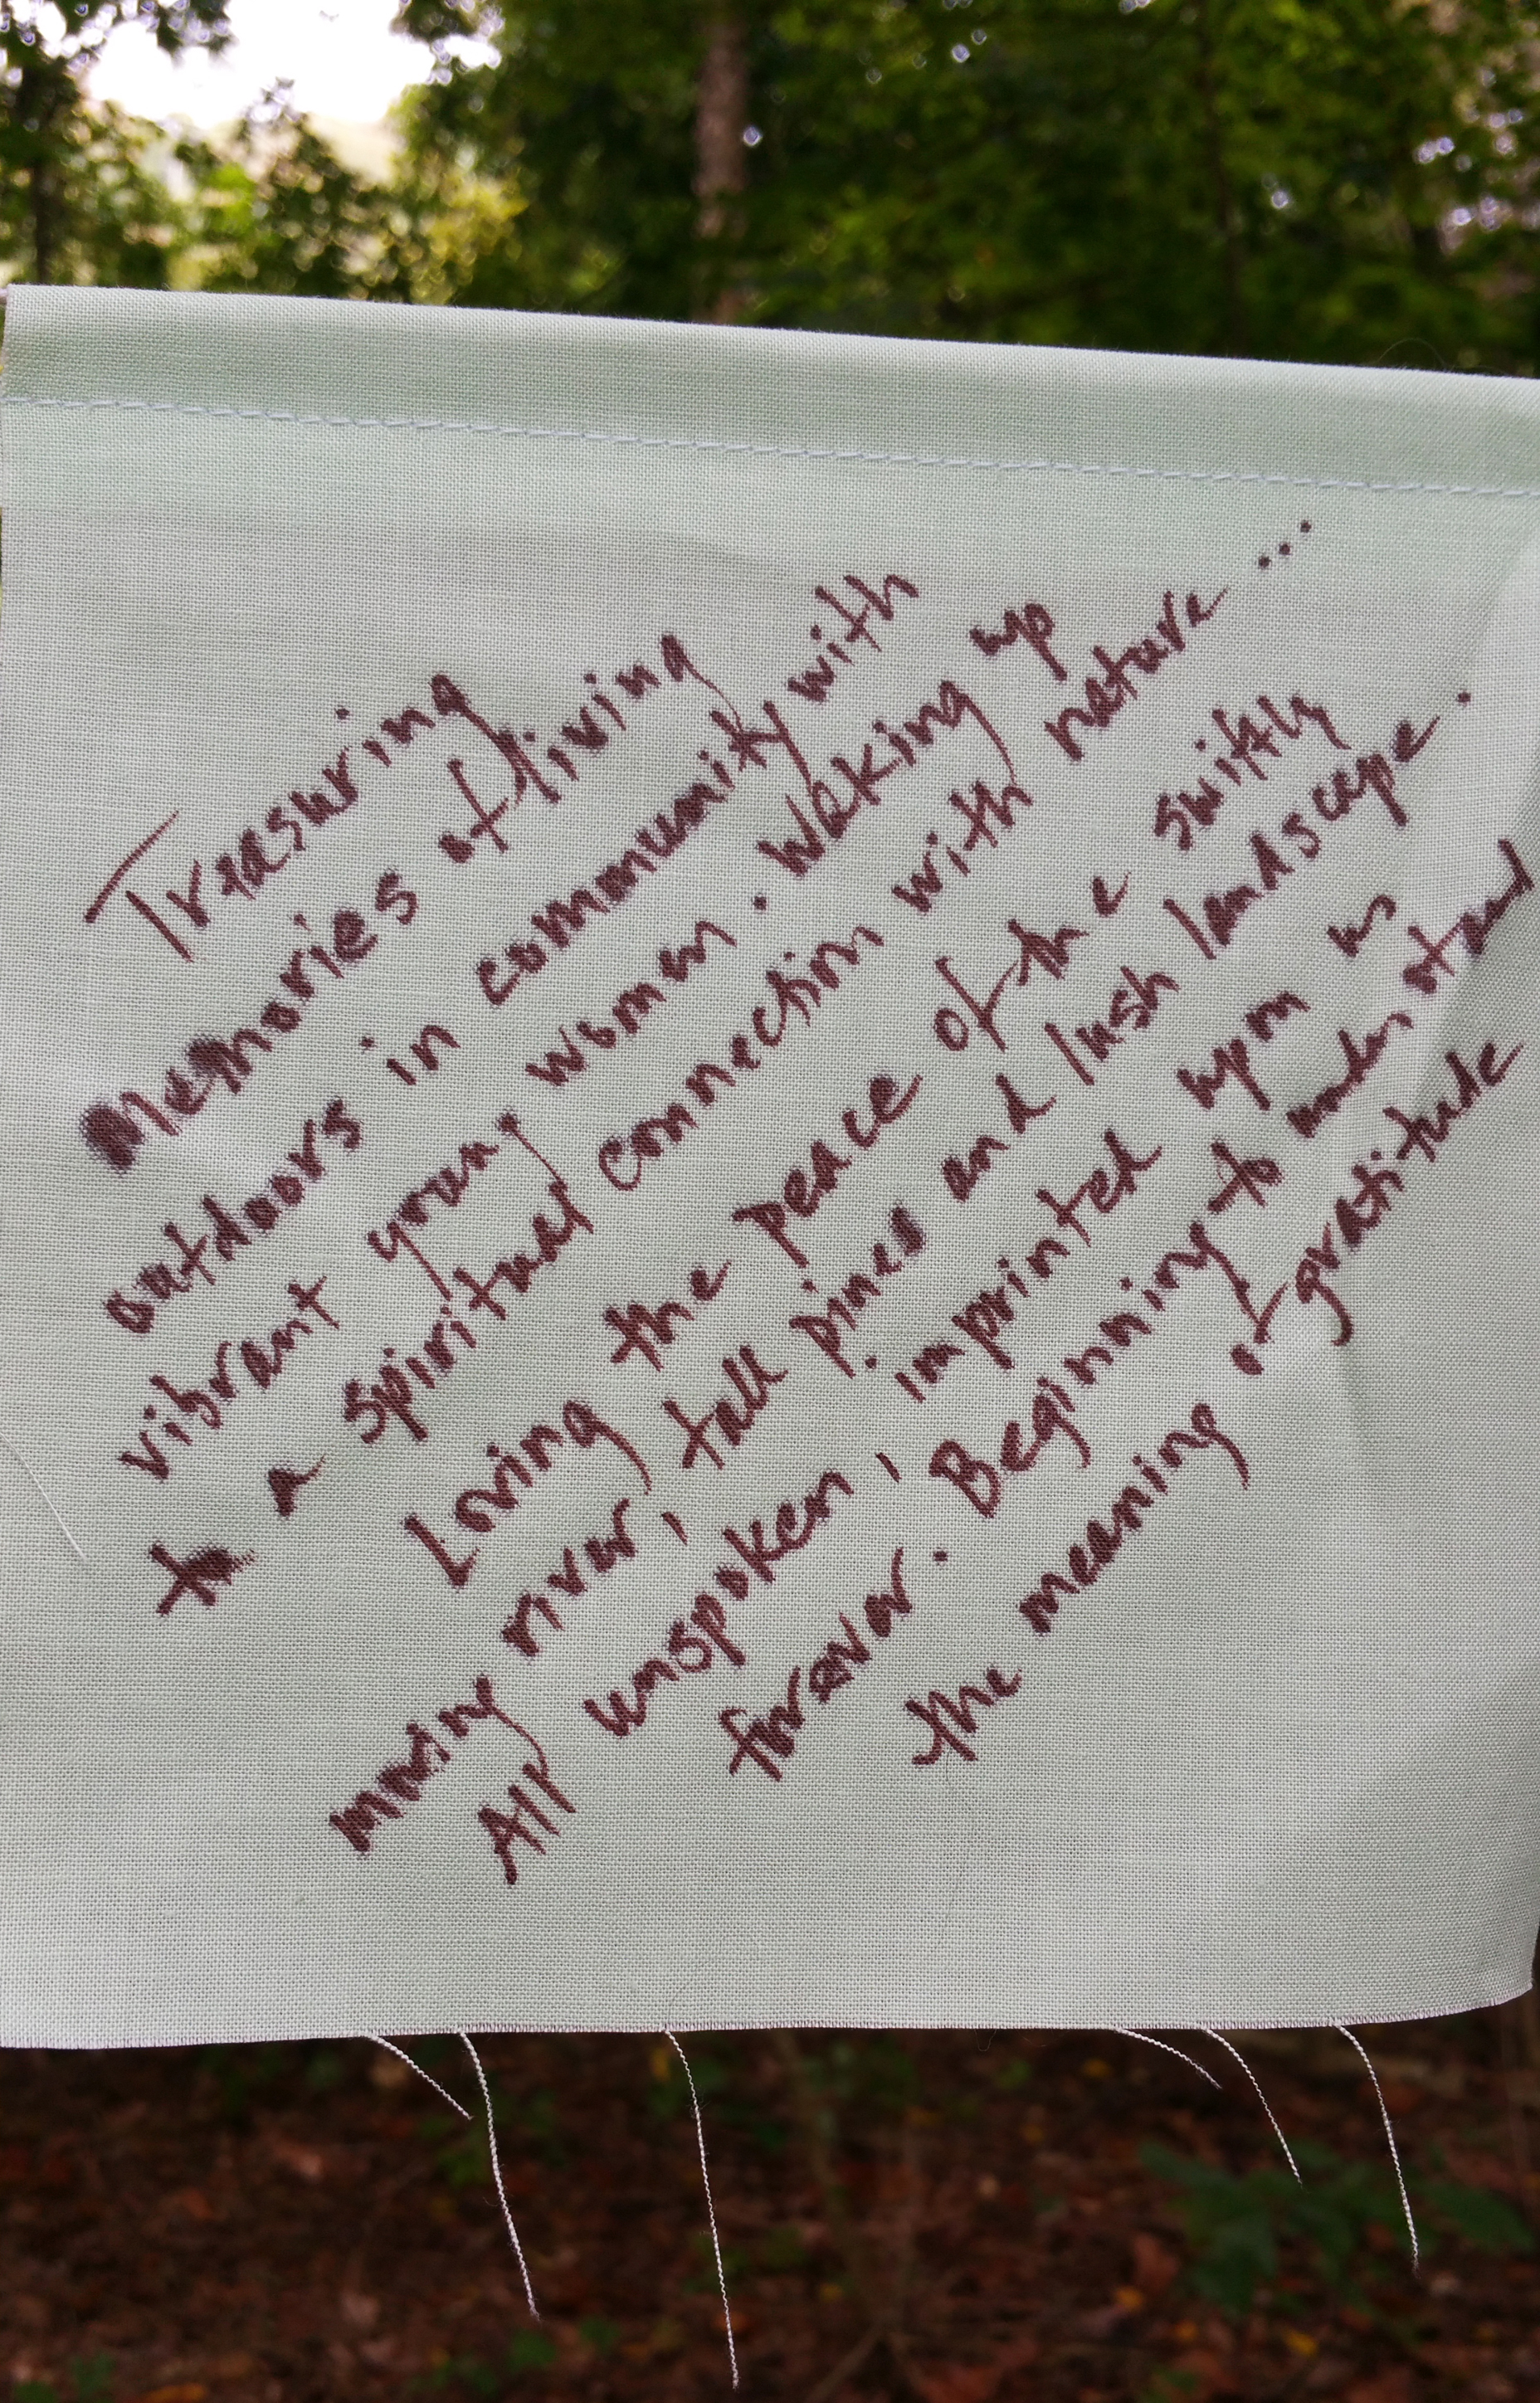 Treasuring
memories of living
outdoors in community with
vibrant young women. Waking up
to a spiritual connection with nature...
Loving the peace of the swiftly
moving river, tall pines and lush landscape.
All unspoken, imprinted upon us
forever. Beginning to understand
the meaning of gratitude